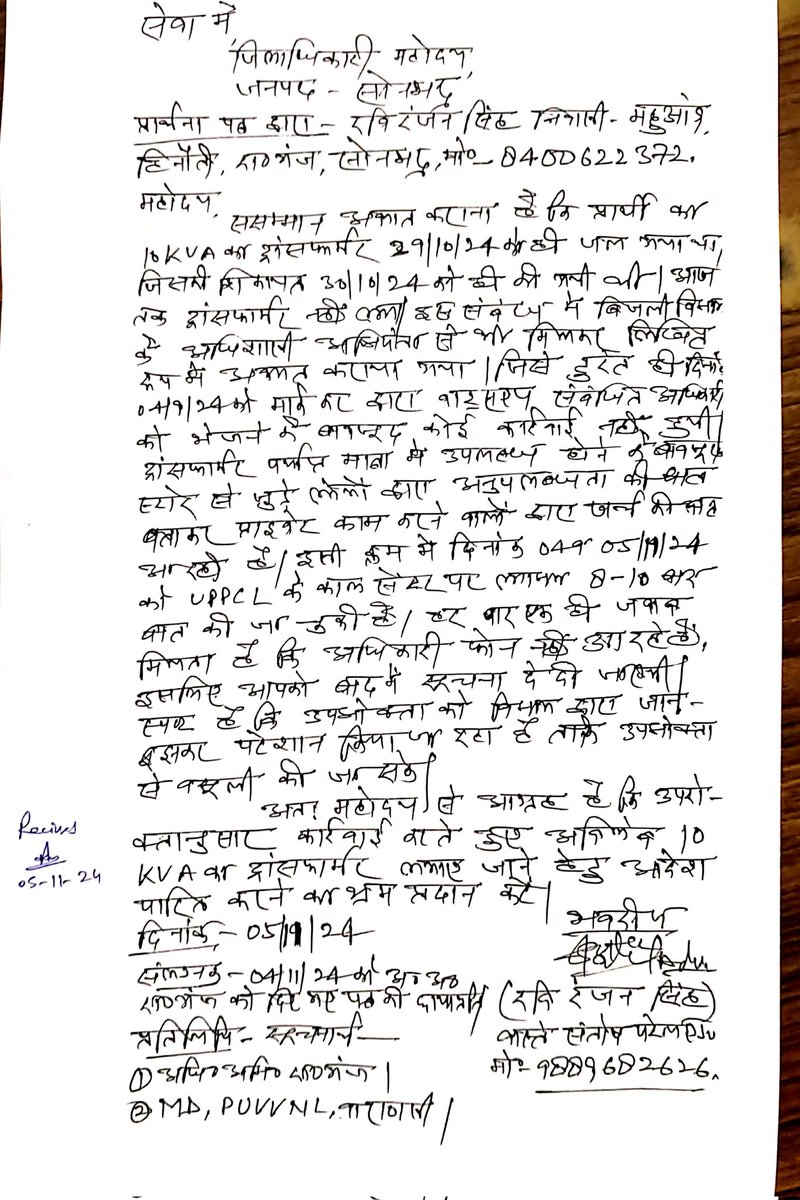 सेवा में,
जिलाधिकारी महोदय,
जनपद - सोनभद्र
प्रार्थना पत्र द्वारा - रवि रंजन सिंह निवासी - महुआंव,
हिनौती, रा०गंज, सोनभद्र, मो०- 8400622372.
महोदय,
ससम्मान अवगत कराना है कि प्रार्थी का
10KVA का ट्रांसफार्मर 29/10/24 को ही जल गया था,
जिसकी शिकायत 30/10/24 को ही की गयी थी। आज
तक ट्रांसफार्मर नहीं लगा। इस संबंध में बिजली विभाग
के अधिशासी अभियंता से भी मिलकर लिखित
रूप में अवगत कराया गया। जिसे तुरंत ही दिनांक
04/11/24 को मार्क कर द्वारा वाट्सएप संबंधित अधिकारी
को भेजने के बावजूद कोई कार्रवाई नहीं हुयी।
ट्रांसफार्मर पर्याप्त मात्रा में उपलब्ध होने के बावजूद
स्टोर से जुड़े लोगों द्वारा अनुपलब्धता की बात
बताकर प्राइवेट काम करने वालों द्वारा खर्च की बात
आ रही है। इसी क्रम में दिनांक 04 व 05/11/24
को UPPCL के काल सेंटर पर लगभग 8-10 बार
बात की जा चुकी है। हर बार एक ही जवाब
मिलता है कि अधिकारी फोन नहीं उठा रहे हैं,
इसलिए आपको बाद में सूचना दे दी जाएगी।
स्पष्ट है कि उपभोक्ता को विभाग द्वारा जान-
बूझकर परेशान किया जा रहा है ताकि उपभोक्ता
से वसूली की जा सके।
अतः महोदय से आग्रह है कि उपरो-
क्तानुसार कार्रवाई करते हुए अविलंब 10
KVA का ट्रांसफार्मर लगाए जाने हेतु आदेश
पारित करने का श्रम प्रदान करें।
Recived
05-11-24
दिनांक - 05/11/24
भवदीय
संलग्नक - 04/11/24 को अ० अ०
रा०गंज को दिए गए पत्र की छायाप्रति। (रवि रंजन सिंह)
प्रतिलिपि - सूचनार्थ
वास्ते संतोष पटेल
① अधि० अभि० रा०गंज।
मो०- 9889682626.
② MD, PUVVNL, वाराणसी।